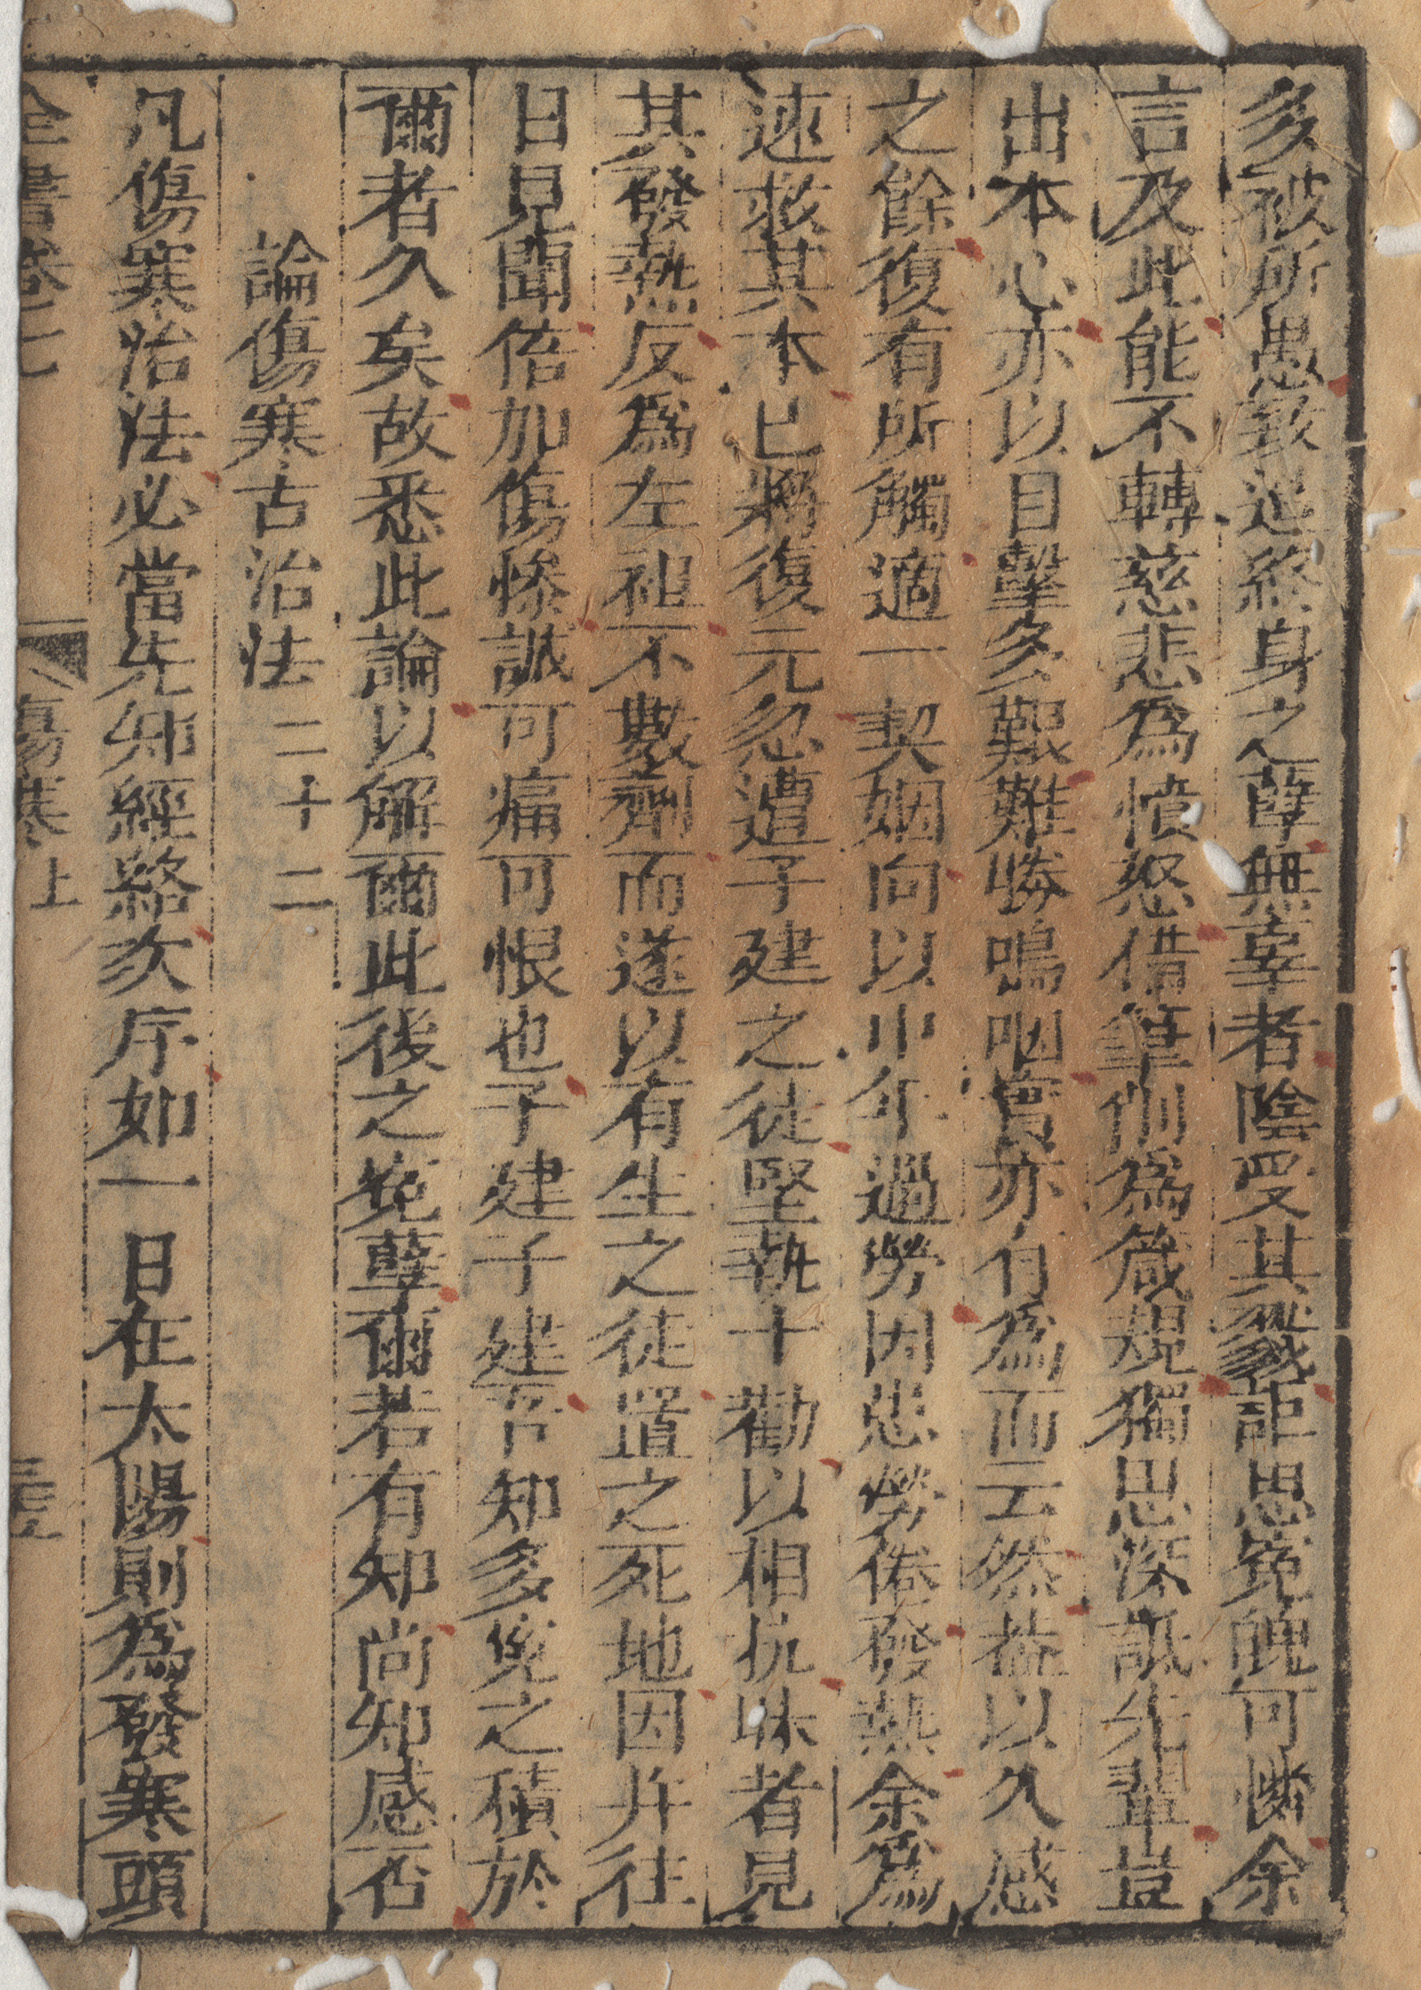 多被所愚致造終身之孽無辜者陰受其戮詎思冤魄可憐余
言及此能不轉慈悲為憤怒借筆削為箴規獨思深詆先輩豈
出本心亦以目擊多艱難勝嗚咽實亦有為而云然葢以久感
之餘復有所觸適一契姻向以中年過勞因患勞倦發熱余為
速救其本已將復元忽遭子建之徒堅執十勸以相抗昧者見
其發熱反為左袒不數劑而遂以有生之徒置之死地因并往
日見聞倍加傷慘誠可痛可恨也子建子建吾知多冤之積於
爾者久矣故悉此論以解爾此後之冤孽爾若有知尚知感否
論傷寒古治法二十二
凡傷寒治法必當先知經絡次序如一日在太陽則為發寒頭
全書卷之七 傷寒上